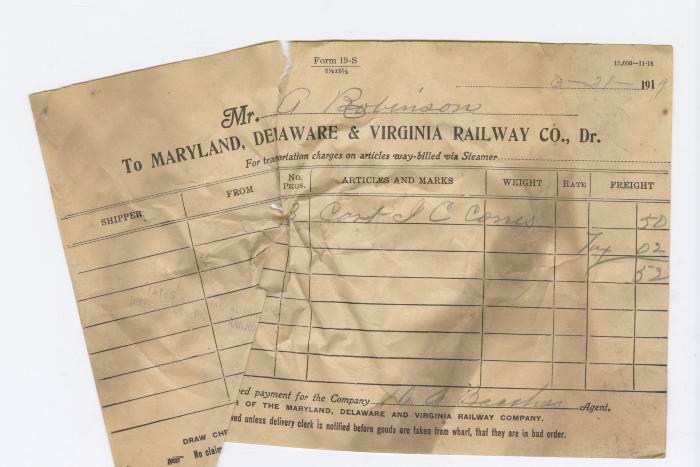 Form 19-S
8½x5½
15,000—11-18
21— 1919
Mr. A Robinson
To MARYLAND, DELAWARE & VIRGINIA RAILWAY CO., Dr.
For tran ortation charges on articles way-billed via Steamer
SHIPPER FROM No. Pkgs. ARTICLES AND MARKS WEIGHT RATE FREIGHT
3 I C Cones 50
Tax 02
52
ed payment for the Company Agent.
R OF THE MARYLAND, DELAWARE AND VIRGINIA RAILWAY COMPANY.
DRAW CHE
No claim wed unless delivery clerk is notified before goods are taken from wharf, that they are in bad order.